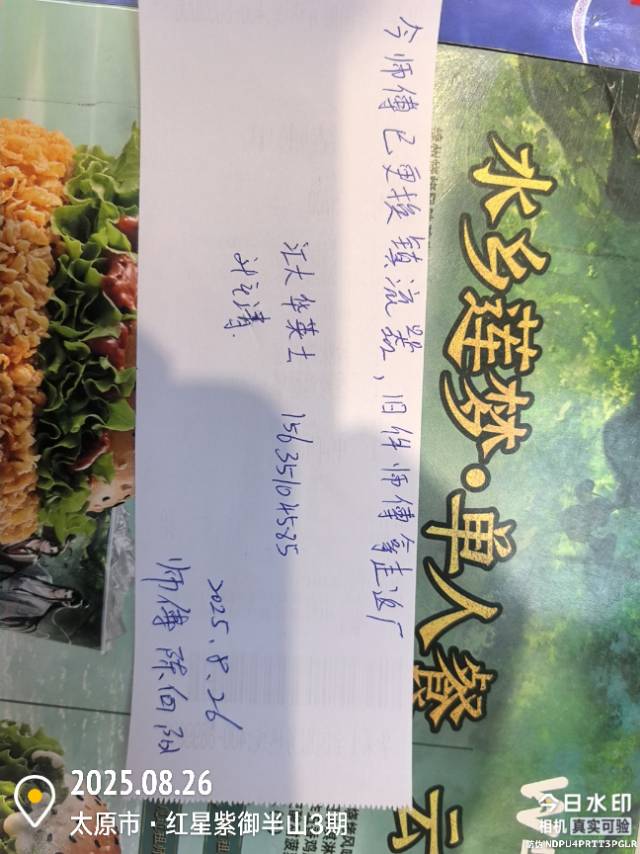 今师傅已更换镇流器，旧件师傅拿走返厂
汇大华英士 15635104525
2025.8.26
师傅陈
水乡莲梦·单人餐
云
2025.08.26
太原市·红星紫御半山3期
今日水印
相机 真实可验
防伪 NDPU4PRTT3PGLR